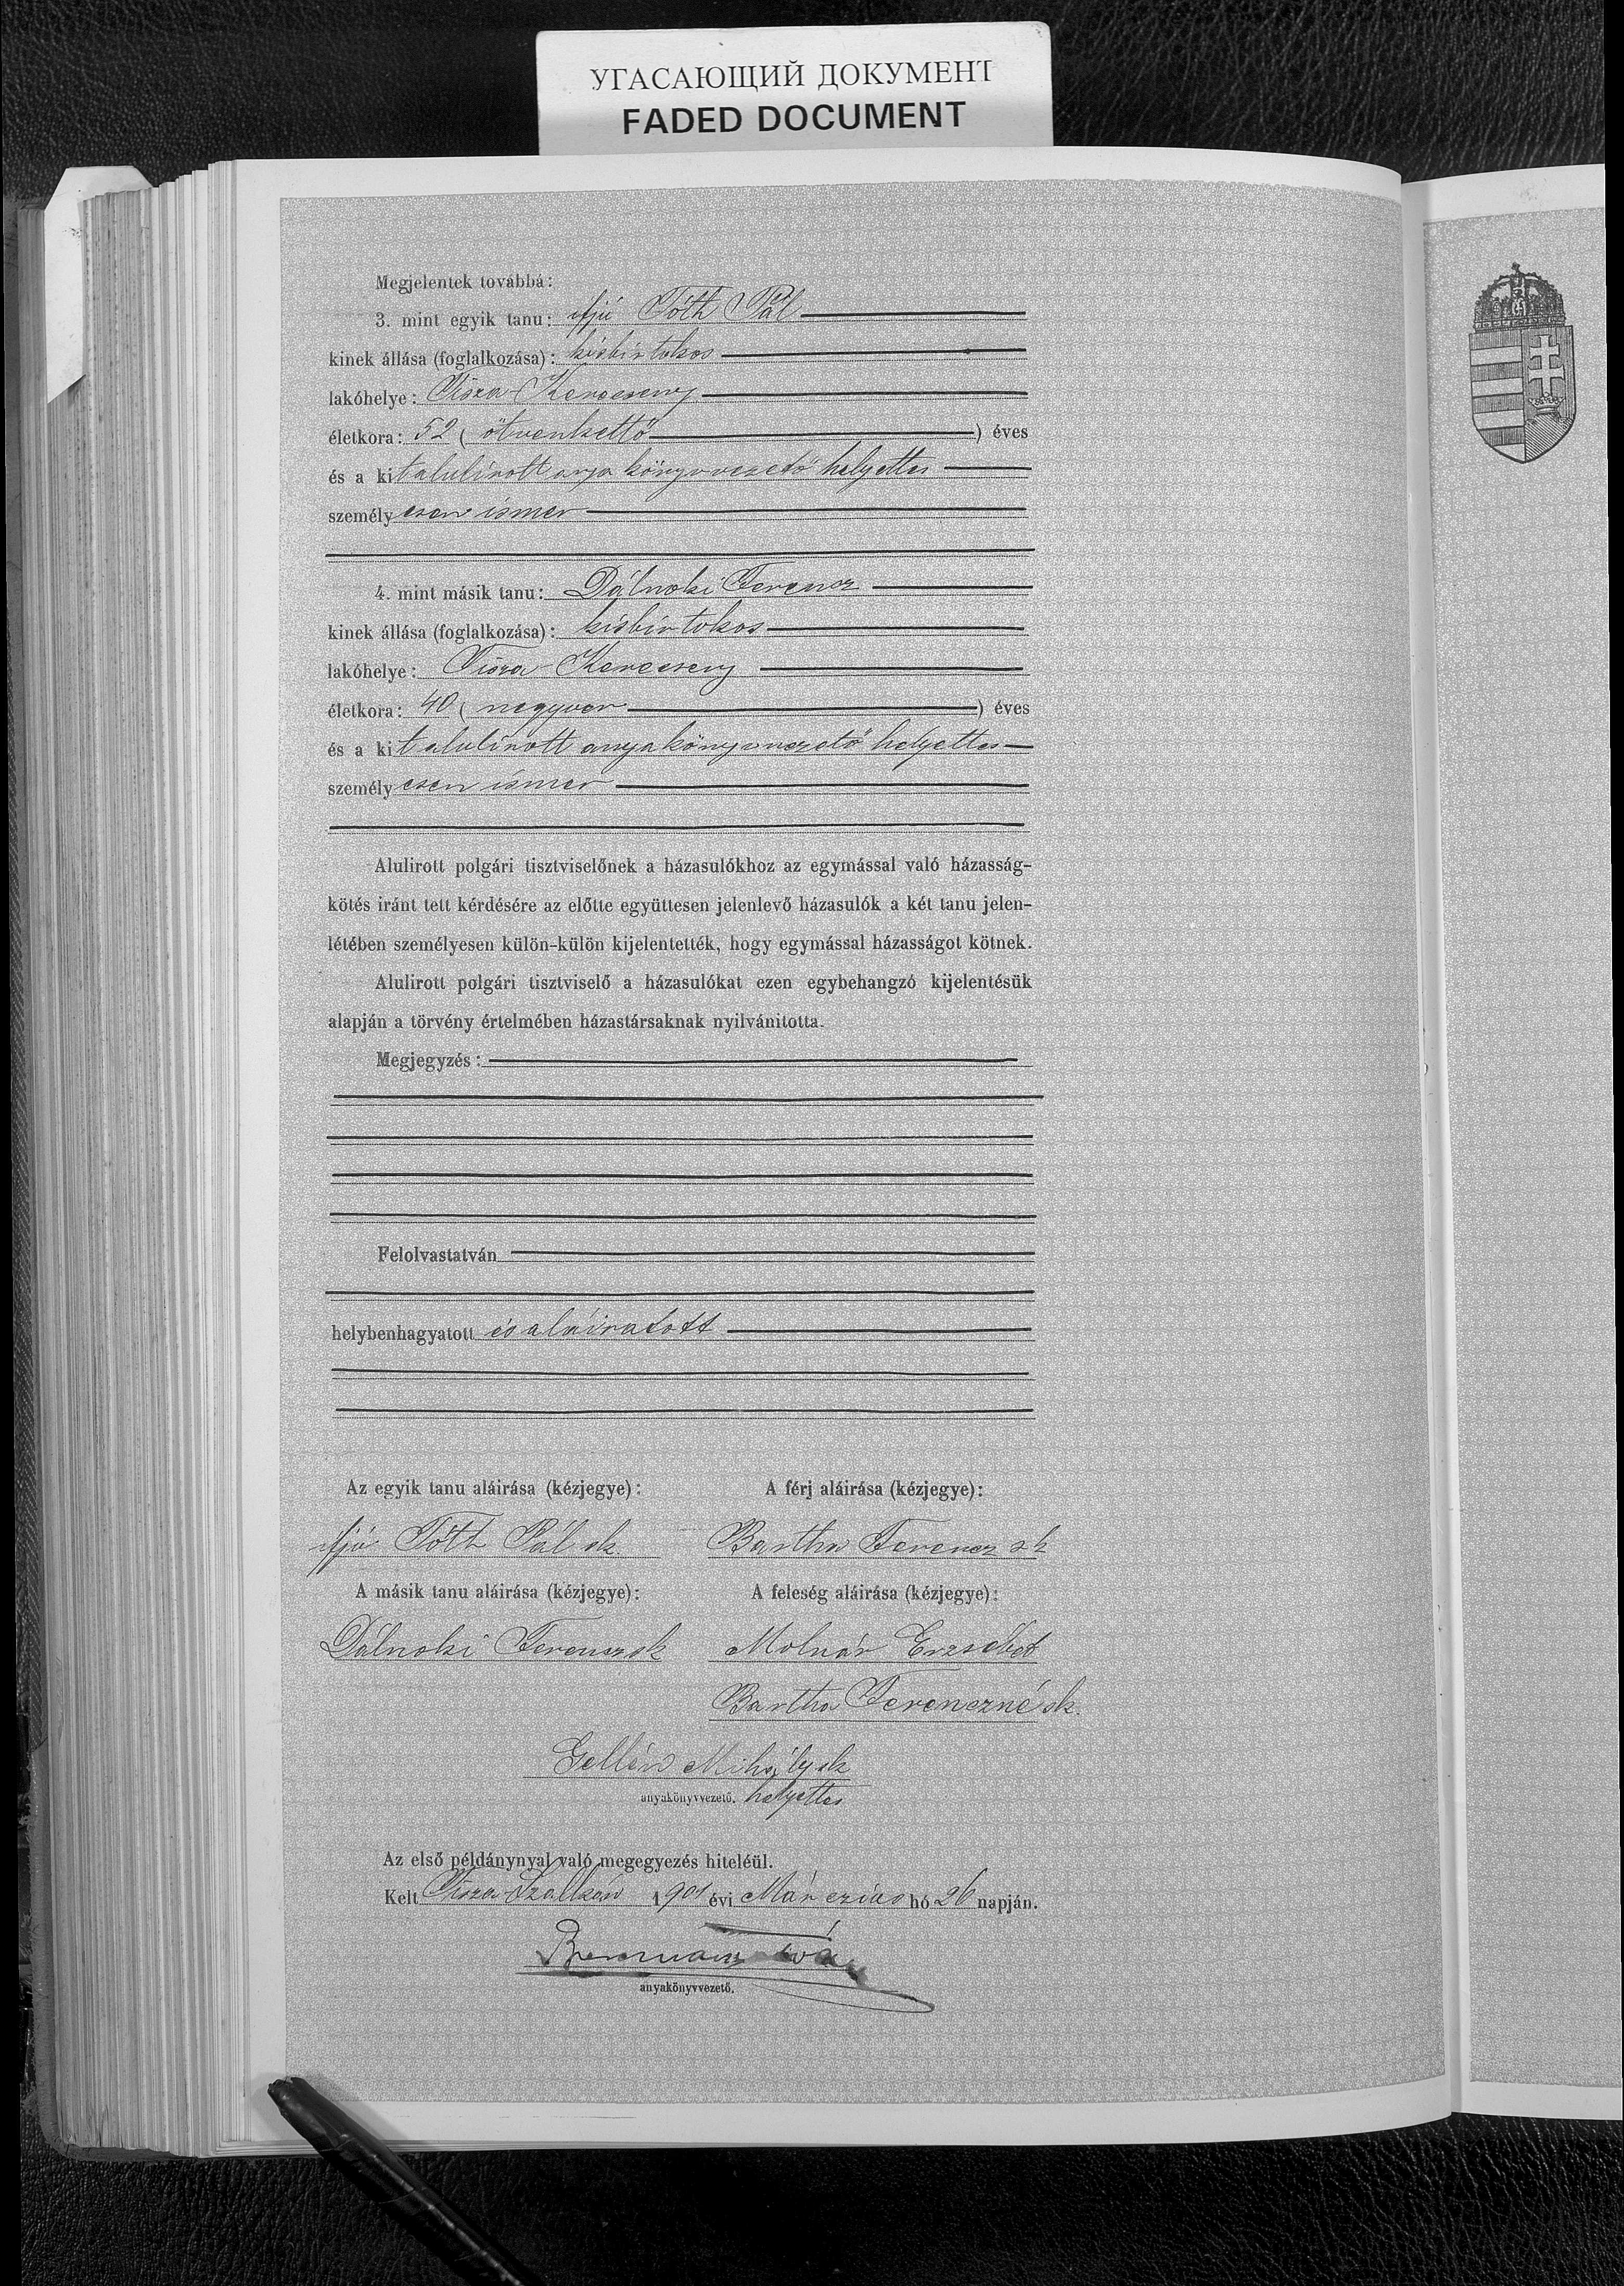 УГАСАЮЩИЙ ДОКУМЕНТ
FADED DOCUMENT
Megjelentek továbbá:
3. mint egyik tanu: ifjú Tóth Pál
kinek állása (foglalkozása): kisbirtokos
lakóhelye: Tisza-Kerecseny
életkora: 52 (ötvenkettő) éves
és a kit alulírott anyakönyvvezető helyettes
személyesen ismer
4. mint másik tanu: Dálnoki Ferencz
kinek állása (foglalkozása): kisbirtokos
lakóhelye: Tisza-Kerecseny
életkora: 40 (negyven) éves
és a kit alulírott anyakönyvvezető helyettes
személyesen ismer
Alulirott polgári tisztviselőnek a házasulókhoz az egymással való házasság-
kötés iránt tett kérdésére az előtte együttesen jelenlevő házasulók a két tanu jelen-
létében személyesen külön-külön kijelentették, hogy egymással házasságot kötnek.
Alulirott polgári tisztviselő a házasulókat ezen egybehangzó kijelentésük
alapján a törvény értelmében házastársaknak nyilvánitotta.
Megjegyzés:
Felolvastatván
helybenhagyatott és aláiratott
Az egyik tanu aláirása (kézjegye): A férj aláirása (kézjegye):
ifjú Tóth Pál sk. Bartha Ferencz sk
A másik tanu aláirása (kézjegye): A feleség aláirása (kézjegye):
Dálnoki Ferencz sk Molnár Erzsébet
Bartha Ferenczné sk.
Gellén Mihály sk
anyakönyvvezető. helyettes
Az első példánynyal való megegyezés hiteléül.
Kelt Tisza-Szalkán 1901 évi Márczius hó 26 napján.
anyakönyvvezető.